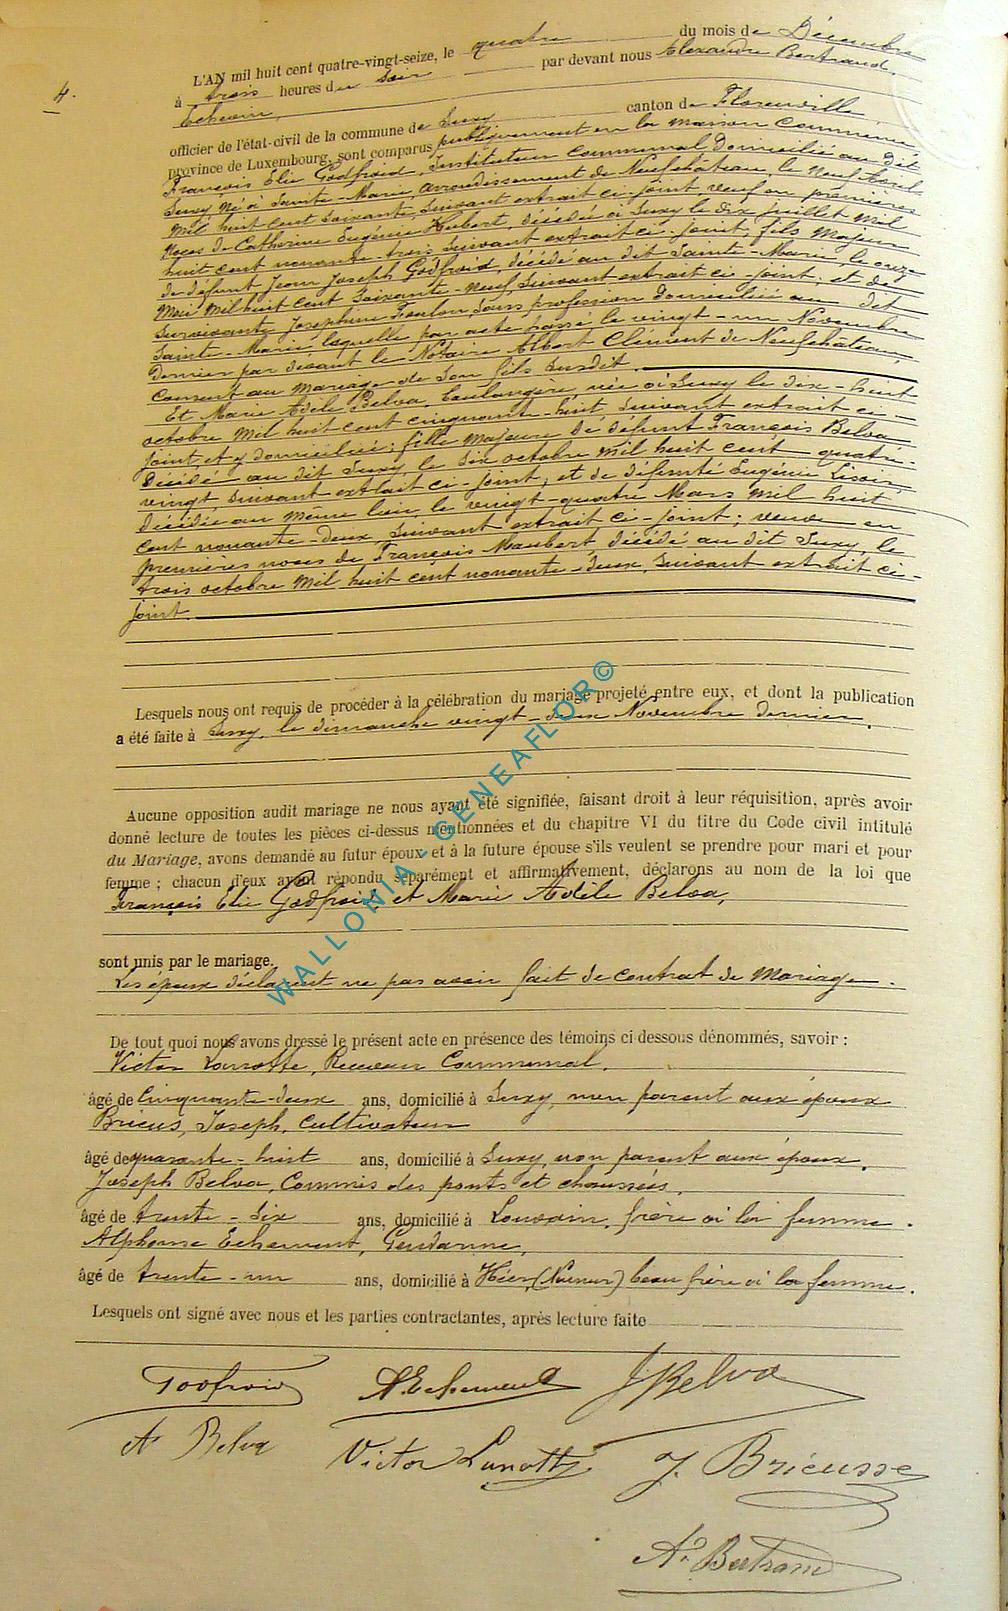 4.
L'AN mil huit cent quatre-vingt-seize, le quatre du mois de Décembre
à trois heures du soir par devant nous Alexandre Bertrand,
Echevin,
officier de l'état-civil de la commune de Suxy canton de Florenville,
province de Luxembourg, sont comparus publiquement en la maison commune
François Elie Godfroid, Instituteur communal domicilié au dit
Suxy, né à Sainte-Marie, arrondissement de Neufchâteau, le neuf
mil huit cent soixante, suivant extrait ci-joint, veuf en premières
noces de Catherine Eugénie Hubert, décédée à Suxy le dix juillet mil
huit cent nonante-trois suivant extrait ci-joint, fils majeur
de défunt Jean Joseph Godfroid, décédé au dit Sainte-Marie, le onze
Mai mil huit cent soixante-neuf suivant extrait ci-joint, et de
survivante Joséphine Toulon, sans profession domiciliée au dit
Sainte-Marie laquelle par acte passé le vingt-un Novembre
dernier par devant le Notaire Albert Clément de Neufchâteau,
consent au mariage de son fils susdit.
Et Marie Adèle Belva, boulangère, née à Suxy le dix-huit
octobre mil huit cent cinquante-huit, suivant extrait ci-
joint, et y domiciliée; fille majeure de défunt François Belva
décédé au dit Suxy, le six octobre mil huit cent quatre-
vingt suivant extrait ci-joint, et de défunte Eugénie
décédée au même lieu, le vingt-quatre Mars mil huit
cent nonante-deux, suivant extrait ci-joint; veuve en
premières noces de François Maubert décédé au dit Suxy, le
trois octobre mil huit cent nonante-deux, suivant extrait ci-
joint.
Lesquels nous ont requis de procéder à la célébration du mariage projeté entre eux, et dont la publication
a été faite à Suxy, le dimanche vingt-deux Novembre dernier.
Aucune opposition audit mariage ne nous ayant été signifiée, faisant droit à leur réquisition, après avoir
donné lecture de toutes les pièces ci-dessus mentionnées et du chapitre VI du titre du Code civil intitulé
du Mariage, avons demandé au futur époux et à la future épouse s'ils veulent se prendre pour mari et pour
femme ; chacun d'eux ayant répondu séparément et affirmativement, déclarons au nom de la loi que
François Elie Godfroid et Marie Adèle Belva,
sont unis par le mariage.
Les époux déclarent ne pas avoir fait de contrat de Mariage.
De tout quoi nous avons dressé le présent acte en présence des témoins ci-dessous dénommés, savoir :
Victor Receveur Communal,
âgé de Cinquante-deux ans, domicilié à Suxy, non parent aux époux
Bricus, Joseph, Cultivateur
âgé de quarante-huit ans, domicilié à Suxy, non parent aux époux.
Joseph Belva, Commis des ponts et chaussées,
âgé de trente-six ans, domicilié à Louvain, frère à la femme.
Alphonse Echement, Gendarme,
âgé de trente-un ans, domicilié à (Namur) beau frère à la femme.
Lesquels ont signé avec nous et les parties contractantes, après lecture faite
Godfroid AEchement JBelva
A Belva Victor Lanotte J. Bricusse
Ae. Bertrand
WALLONIA-GENEAFLOR©